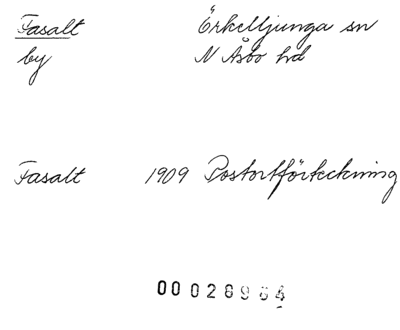 Fasalt Örkelljunga sn
by N Åsbo hd
Fasalt 1909 Postortförteckning
00 028964